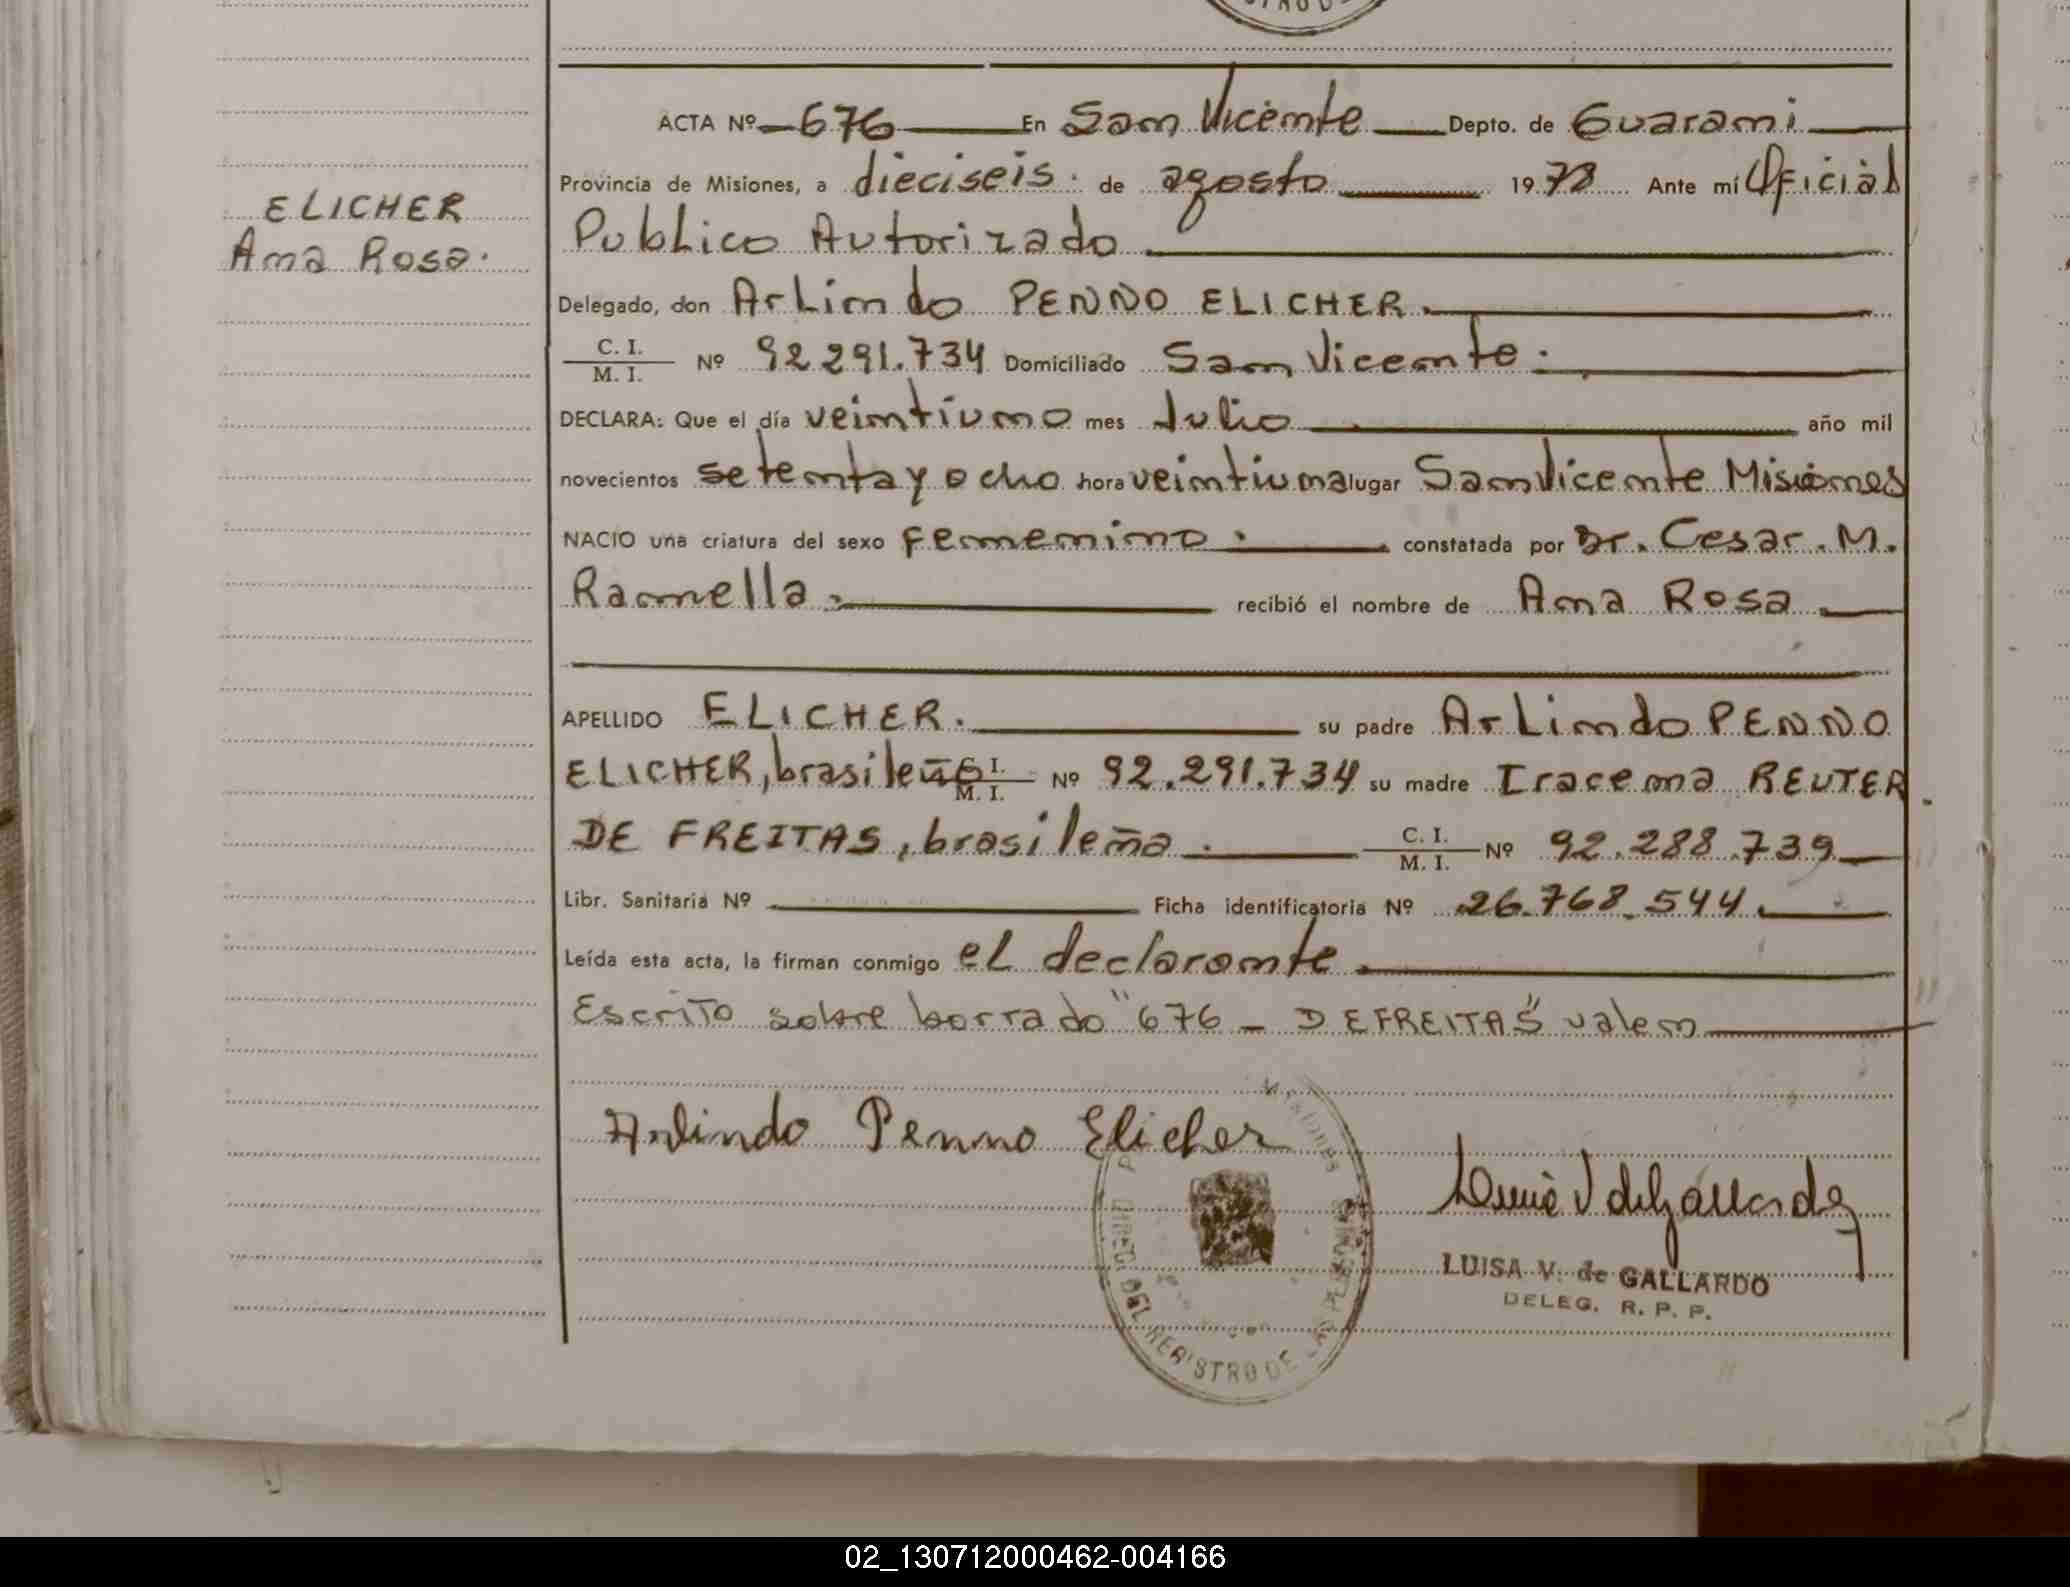 STRO D
ACTA Nº 676 En San Vicente Depto. de Guarani
Provincia de Misiones, a dieciseis. de agosto 1978 Ante mí Oficial
ELICHER
Publico Autorizado
Ana Rosa.
Delegado, don Arlindo PENNO ELICHER.
C. I.
M. I. Nº 92.291.734 Domiciliado San Vicente.
DECLARA: Que el día veintiuno mes Julio año mil
novecientos setenta y ocho hora veintiuna lugar San Vicente Misiones
NACIO una criatura del sexo femenino. constatada por Dr. Cesar. M.
Ramella. recibió el nombre de Ana Rosa
APELLIDO ELICHER. su padre Arlindo PENNO
ELICHER, brasileño C. I. M. I. Nº 92.291.734 su madre Iracema REUTER
DE FREITAS, brasileña. C. I. M. I. Nº 92.288.739
Libr. Sanitaria Nº Ficha identificatoria Nº 26.768.544.
Leída esta acta, la firman conmigo el declarante
Escrito sobre borrado "676 - DEFREITAS" valen
Arlindo Penno Elicher
Misiones
DIREC. DEL REGISTRO DE LAS PERSONAS
Luisa V de Gallardo
LUISA V. de GALLARDO
DELEG. R. P. P.
02_130712000462-004166